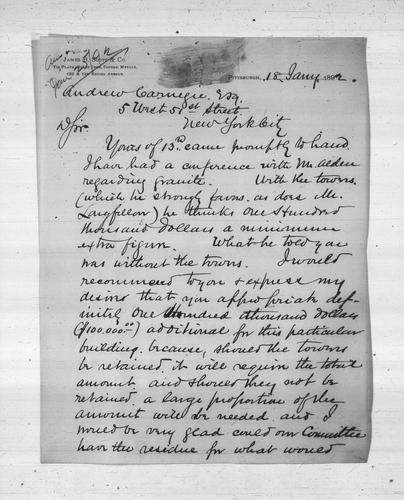 James B. Scott & Co.
Tin Plate, Sheet Iron, Copper, Metals,
Second Avenue.
Pittsburgh, 18 Jany 1892.
Andrew Carnegie, Esq.
5 West 51st Street
New York City
D Sir
Yours of 15th came promptly to hand.
I have had a conference with Mr. Alden
regarding granite. With the towers.
(which he strongly favors. as does Mr.
Longfellow) he thinks One Hundred
thousand Dollars a minimum
extra figure. What he told you
was without the towers. I would
recommend to you & express my
desire that you appropriate def-
initely One Hundred thousand dollars
($100,000.00) additional for this particular
building. because, should the towers
be retained, it will require the total
amount, and should they not be
retained. a large proportion of the
amount will be needed. and I
would be very glad could our Committee
have the residue for what would